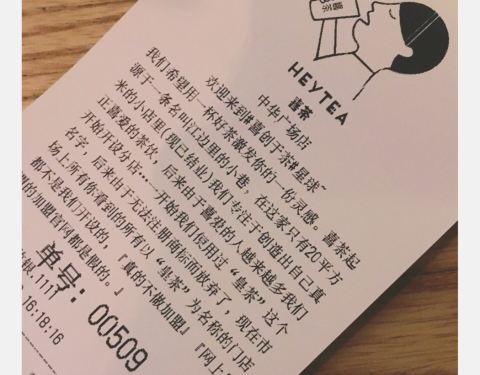 HEYTEA
喜茶
中华广场店
欢迎来到#喜创于茶#星球~
我们希望用一杯好茶激发你的一份灵感。喜茶起
源于一条名叫江边里的小巷,在这家只有20平方
米的小店里(现已结业)我们专注于创造出自己真
正喜爱的茶饮,后来由于喜爱的人越来越多我们
开始开设分店...一开始我们但用过“皇茶”这个
名字,后来由于无法注册商标而放弃了,现在市
场上所有你看到的所有以“皇茶”为名称的门店
都不是我们开设的,『真的不做加盟』『网上
的加盟官网都是假的。』
单号:00509
银.11111
16:18:16